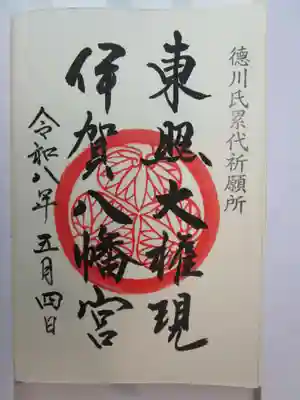 徳川氏累代祈願所
東照大権現
伊賀八幡宮
令和八年五月四日